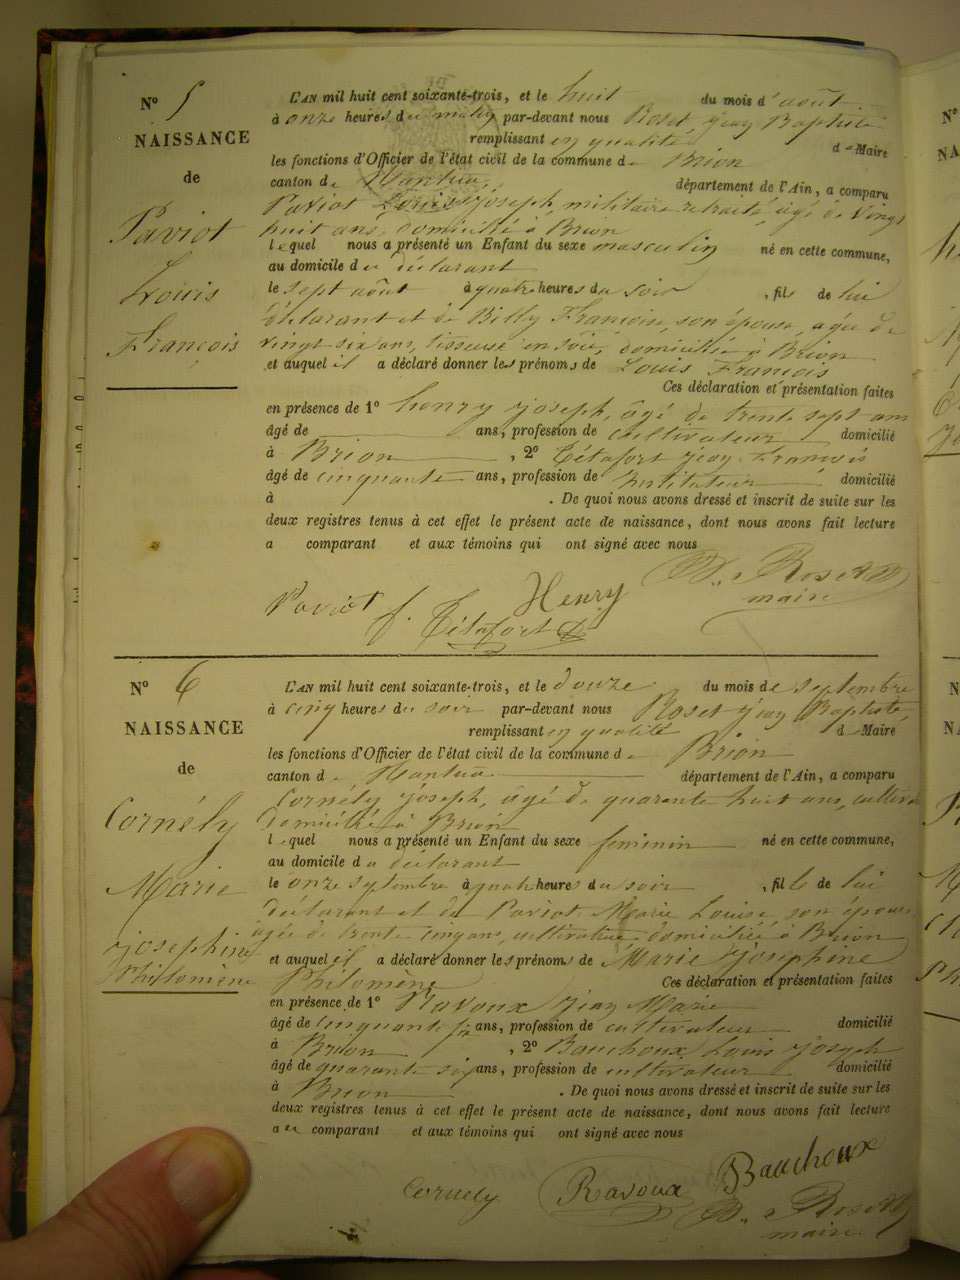 N° 5
NAISSANCE
de
Paviot
Louis
François
L'AN mil huit cent soixante-trois, et le huit du mois d'août
à onze heures du matin par-devant nous Roset Jean Baptiste
remplissant en qualité de Maire
les fonctions d'Officier de l'état civil de la commune de Brion
canton de Nantua, département de l'Ain, a comparu
Paviot Louis Joseph, militaire retraité, âgé de vingt
huit ans, domicilié à Brion
lequel nous a présenté un Enfant du sexe masculin né en cette commune,
au domicile du déclarant
le sept août à quatre heures du soir, fils de lui
déclarant et de Billy Françoise, son épouse, agée de
vingt six ans, tisseuse en soie, domiciliée à Brion
et auquel il a déclaré donner les prénoms de Louis François
Ces déclaration et présentation faites
en présence de 1° henry joseph, âgé de trente sept ans
âgé de ans, profession de cultivateur domicilié
à Brion, 2° Tétafort Jean François
âgé de cinquante ans, profession de Instituteur domicilié
à . De quoi nous avons dressé et inscrit de suite sur les
deux registres tenus à cet effet le présent acte de naissance, dont nous avons fait lecture
a comparant et aux témoins qui ont signé avec nous
Paviot f. Tétafort Henry Roset
maire
N° 6
NAISSANCE
de
Cornély
Marie
josephine
Philomène
L'AN mil huit cent soixante-trois, et le douze du mois de septembre
à cinq heures du soir par-devant nous Roset Jean Baptiste,
remplissant en qualité d Maire
les fonctions d'Officier de l'état civil de la commune de Brion
canton de Nantua département de l'Ain, a comparu
Cornély joseph, âgé de quarante huit ans,
domicilié à Brion
lequel nous a présenté un Enfant du sexe feminin né en cette commune,
au domicile du déclarant
le onze septembre à quatre heures du soir, fille de lui
déclarant et de Paviot Marie Louise, son épouse
agée de trente cinq ans, cultivatrice domiciliée à Brion
et auquel il a déclaré donner les prénoms de Marie josephine
Philomène Ces déclaration et présentation faites
en présence de 1° Ravoux Jean Marie
âgé de cinquante six ans, profession de cultivateur domicilié
à Brion, 2° Bauchoux Louis joseph
âgé de quarante six ans, profession de cultivateur domicilié
à Brion . De quoi nous avons dressé et inscrit de suite sur les
deux registres tenus à cet effet le présent acte de naissance, dont nous avons fait lecture
au comparant et aux témoins qui ont signé avec nous
Cornely Ravoux Bauchoux
Roset
maire